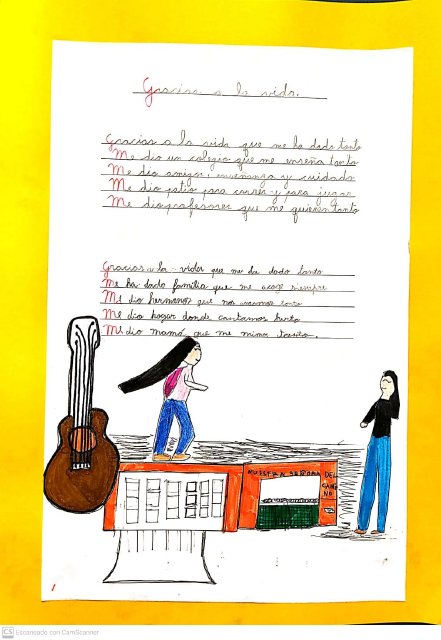 Gracias a la vida.
Gracias a la vida que me ha dado tanto
Me dio un colegio que me enseña tanto
Me dio amigos, enseñanza y cuidado
Me dio patio para correr y para jugar
Me dio profesores que me quieren tanto
Gracias a la vida que me ha dado tanto
Me ha dado familia que me acoge siempre
Me dio hermanos que nos amamos tanto
Me dio hogar donde cantamos tanto
Me dio mamá que me mima tanto.
NUESTRA SEÑORA DEL
CAMI
NO
CS Escaneado con CamScanner